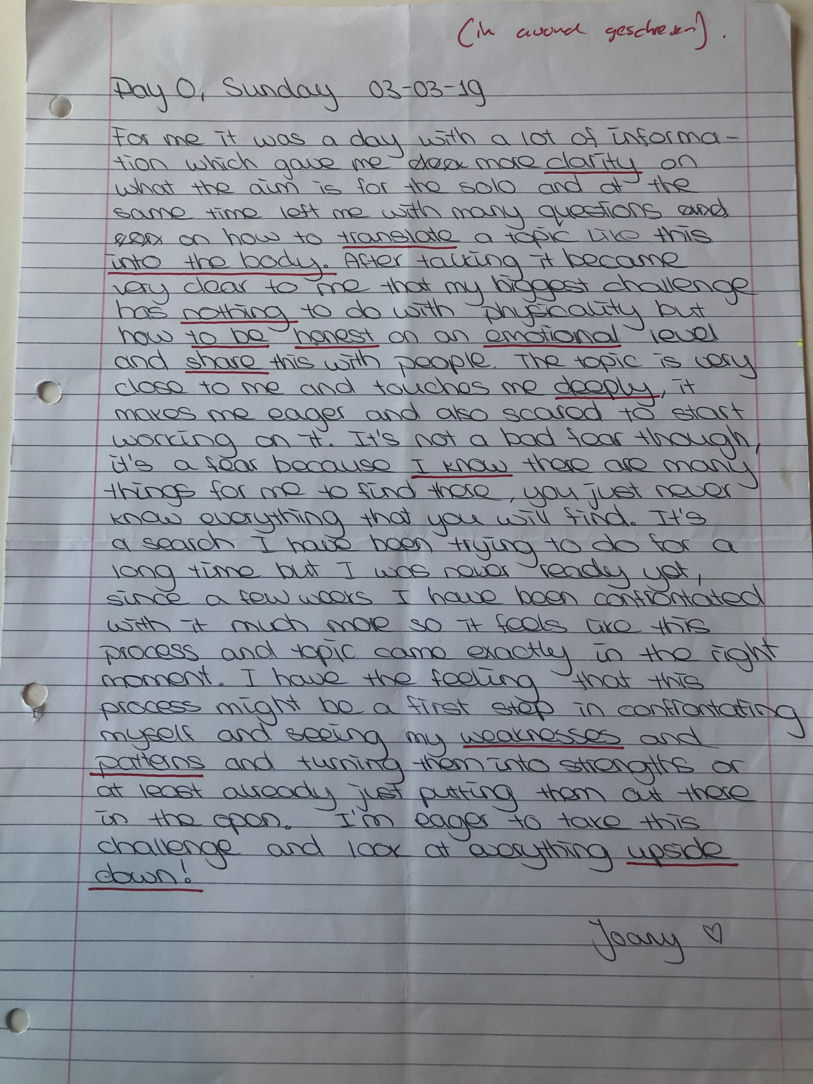 (in avond geschreven).
Day 0, Sunday 03-03-19
For me it was a day with a lot of informa-
tion which gave me more clarity on
what the aim is for the solo and at the
same time left me with many questions and
on how to translate a topic like this
into the body. After talking it became
very clear to me that my biggest challenge
has nothing to do with physicality but
how to be honest on an emotional level
and share this with people. The topic is very
close to me and touches me deeply, it
makes me eager and also scared to start
working on it. It's not a bad fear though,
it's a fear because I know there are many
things for me to find there, you just never
know everything that you will find. It's
a search I have been trying to do for a
long time but I was never ready yet,
since a few weeks I have been confrontated
with it much more so it feels like this
process and topic came exactly in the right
moment. I have the feeling that this
process might be a first step in confrontating
myself and seeing my weaknesses and
patterns and turning them into strengths or
at least already just putting them out there
in the open. I'm eager to take this
challenge and look at everything upside
down!
Joany ♡